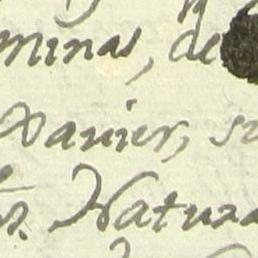 minas, de
Xavier, s
Natura